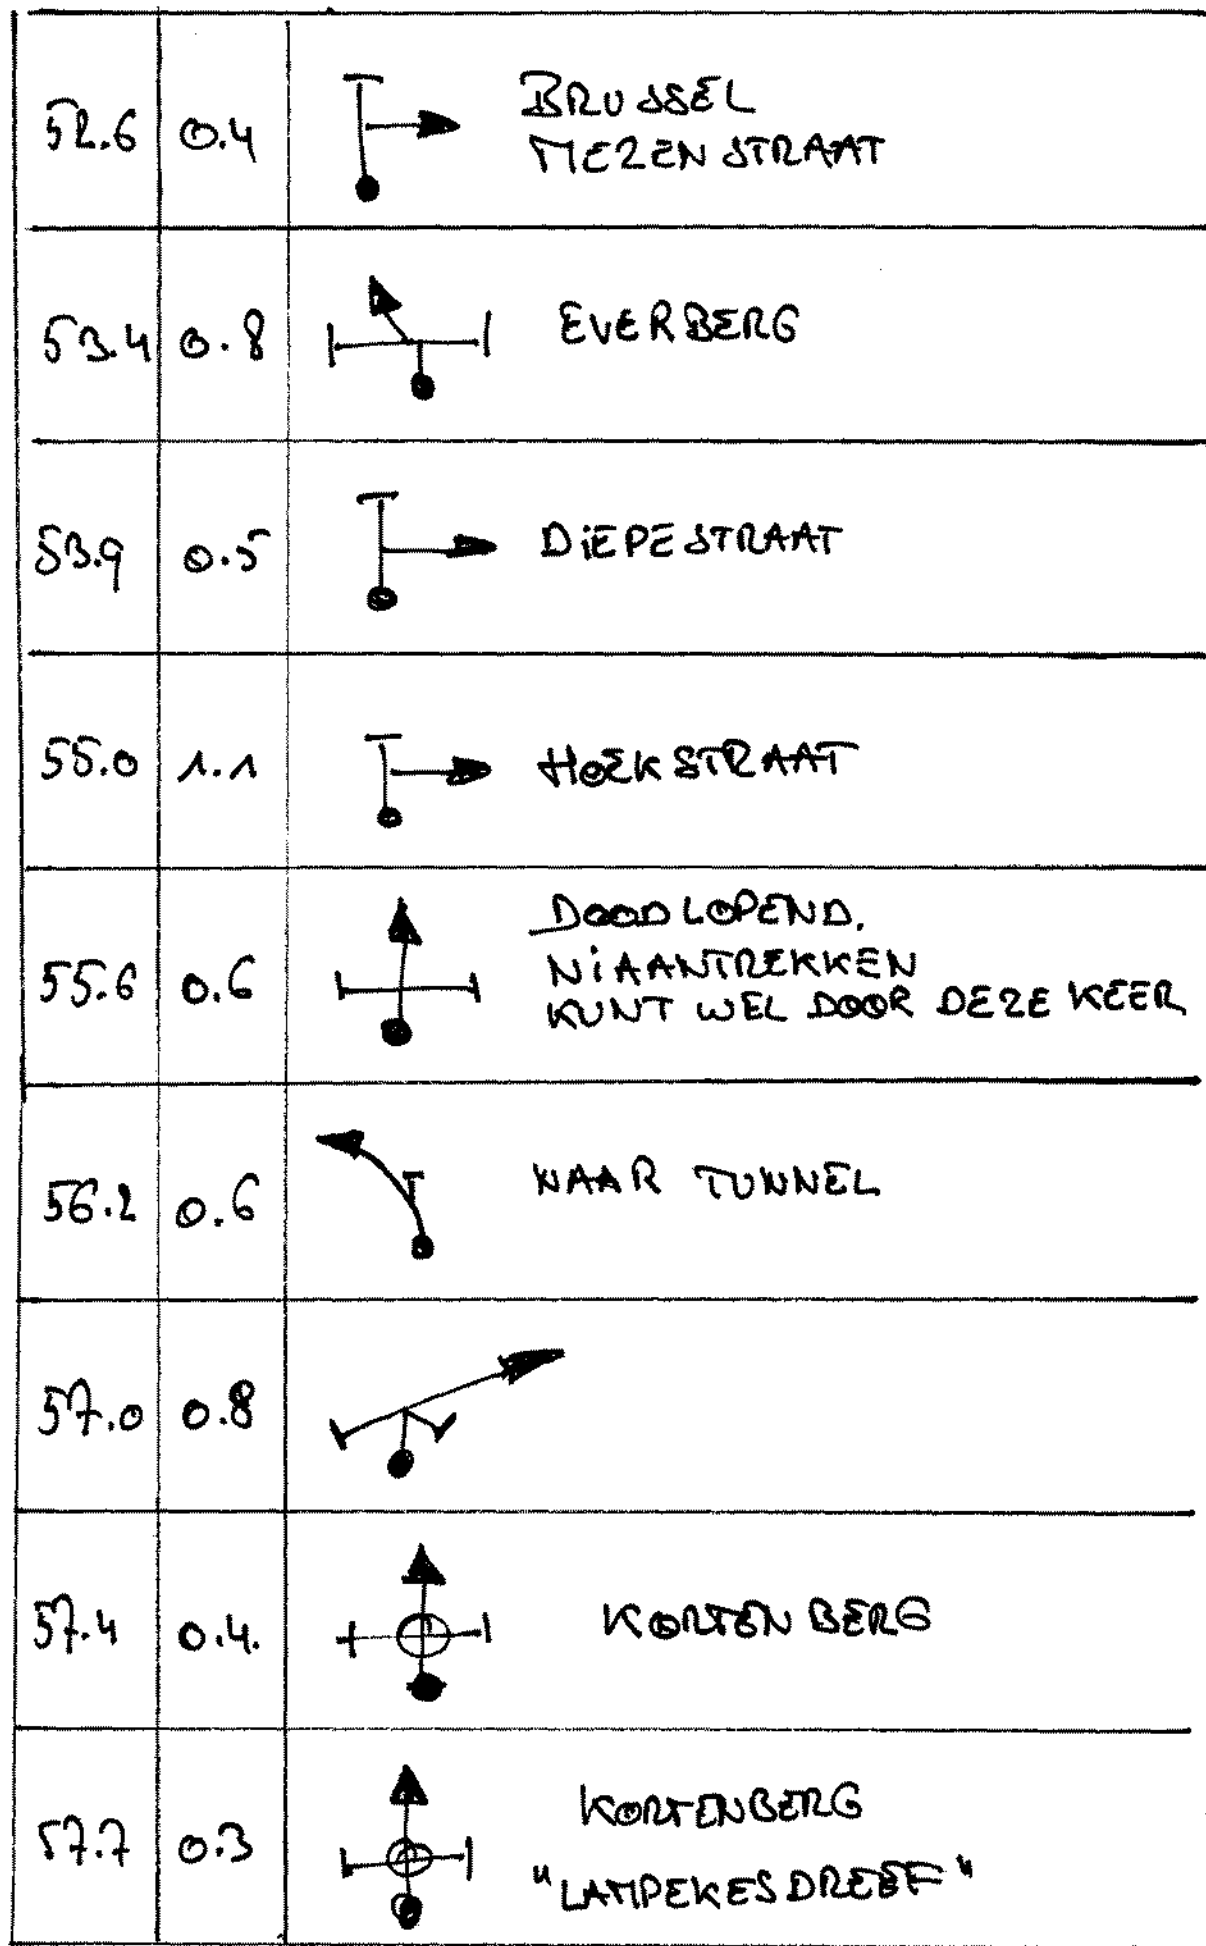 52.6 0.4 BRUSSEL
MEZENSTRAAT
53.4 0.8 EVERBERG
53.9 0.5 DiEPESTRAAT
55.0 1.1 HOEKSTRAAT
55.6 0.6 DOODLOPEND.
NiAANTREKKEN
KUNT WEL DOOR DEZE KEER
56.2 0.6 NAAR TUNNEL
57.0 0.8
57.4 0.4. KORTENBERG
57.7 0.3 KORTENBERG
"LAMPEKESDREEF"